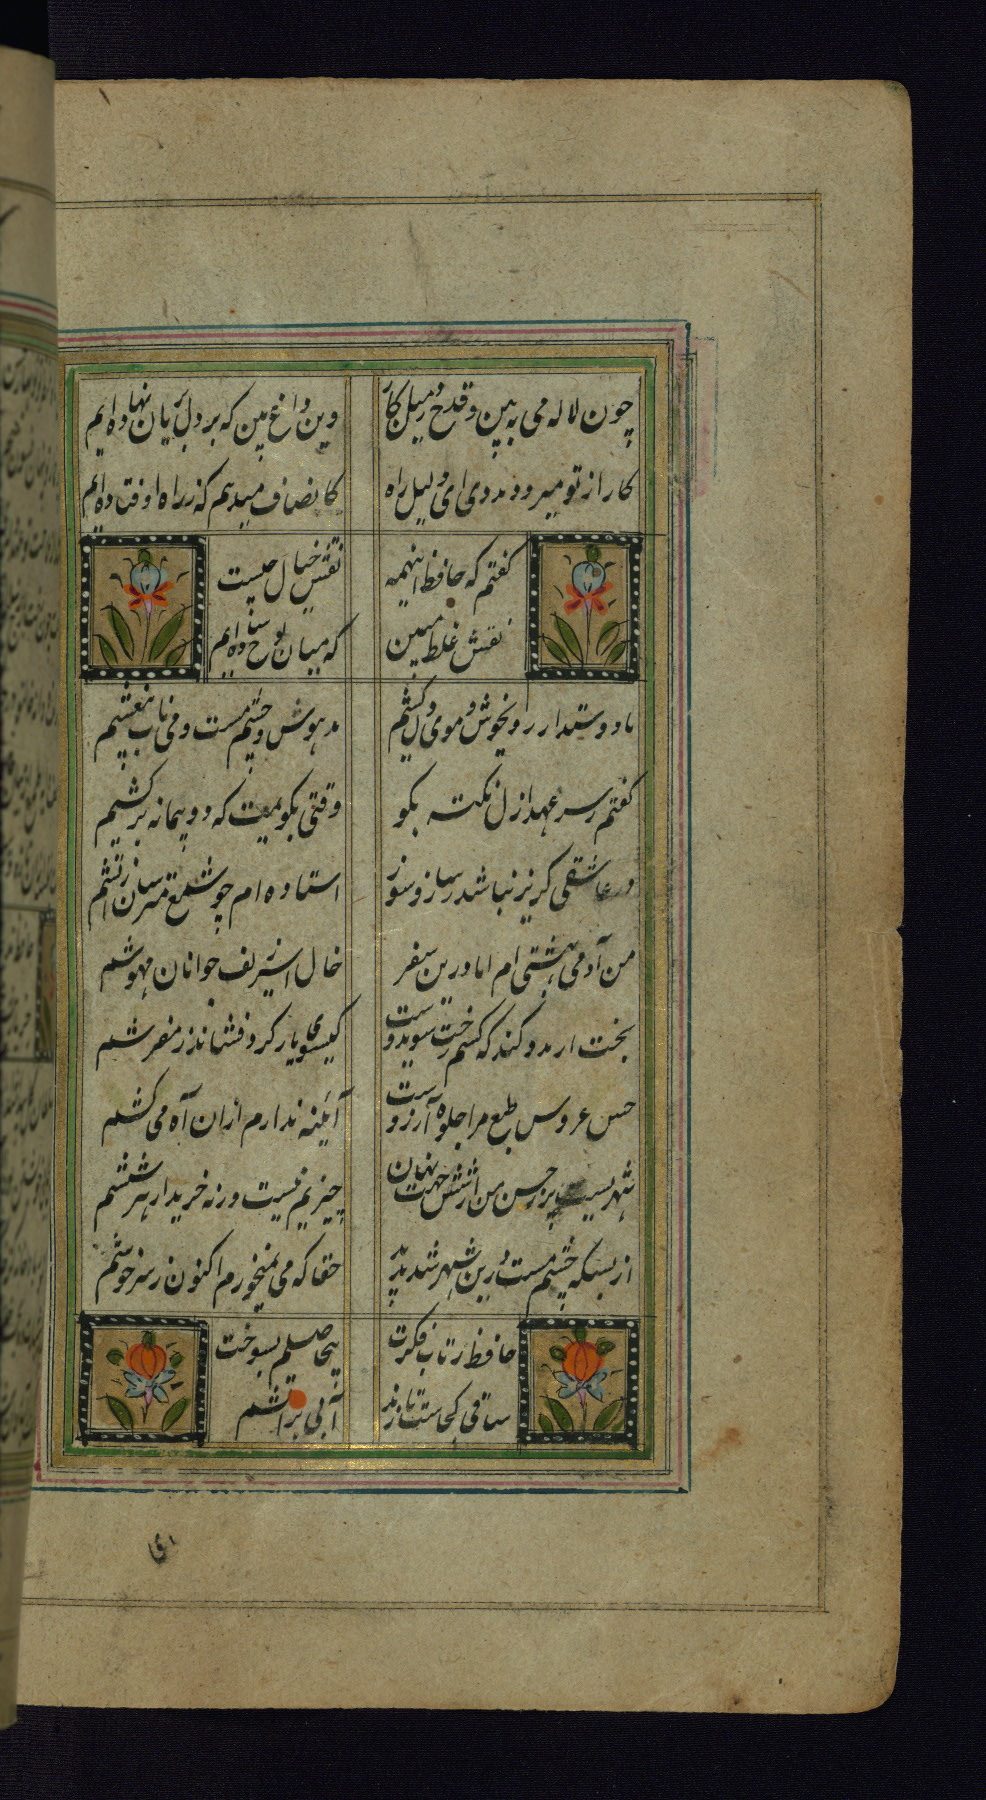 چون لاله می به بین و قدح در میان کار
وین داغ بین که بر دل بریان نهاده ایم
کار از تو میرود مددی ای دلیل راه
کانصاف میدهم که ز راه اوفتاده ایم
گفتم که حافظ اینهمه
نقش خیال چیست
نقش غلط مبین
که همان لوح ساده ایم
ما دوستدار روی خوش و موی دلکشیم
مدهوش چشم مست و می ناب بیغشیم
گفتم ز سر عهد ازل نکته بگو
وقتی بگویمت که دو پیمانه برکشیم
در عاشقی گریز نباشد ز ساز و سوز
استاده ام چو شمع مترسان ز آتشم
من آدمی بهشتی ام اما درین سفر
حالی اسیر عشق جوانان مهوشم
بخت ار مدد کند که کشم رخت سوی دوست
گیسوی یار گرد فشاند ز مفرشم
حسن عروس طبع مرا جلوه آرزوست
آئینه ندارم از ان آه می کشم
شهریست پر ز حسن من از شش جهت
چیزیم نیست ورنه خریدار هر ششم
از بسکه چشم مست درین شهر
حقا که می نمیخورم اکنون و سرخوشم
حافظ ز تاب فکرت
بیحاصلم بسوخت
ساقی کجاست تا زند
آبی بر آتشم